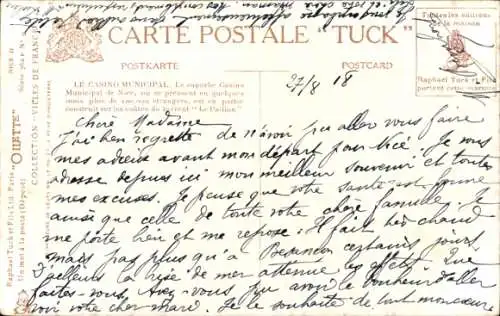 CARTE POSTALE "TUCK"
POSTKARTE
POSTCARD
Toutes les éditions
de la maison
Raphael Tuck et Fils
portent cette marque
LE CASINO MUNICIPAL. Le superbe Casino
Municipal de Nice, où se pressent en quelques
mois plus de étrangers, est en partie
construit sur les voûtes de la "Le Paillon."
Raphael Tuck et Fils Ltd. Paris
Un mot à la poste (Déposé)
"OILETTE"
COLLECTION - VILLES DE FRANCE
27/8 18
Chère Madame
J'ai bien regretté de n'avoir pu aller vous faire
mes adieux avant mon départ pour Nice. Je vous
adresse depuis ici mon meilleur souvenir et toutes
mes excuses. Je pense que votre santé est bonne
ainsi que celle de toute votre chère famille. Je
me porte bien et me repose: Il fait bien chaud
mais pas plus qu'à Besançon certains jours
D'ailleurs la brise de mer attenue les effets. Que
faites-vous, Avez-vous pu avoir le bonheur d'aller
voir votre cher mari. Je le souhaite de tout mon cœur